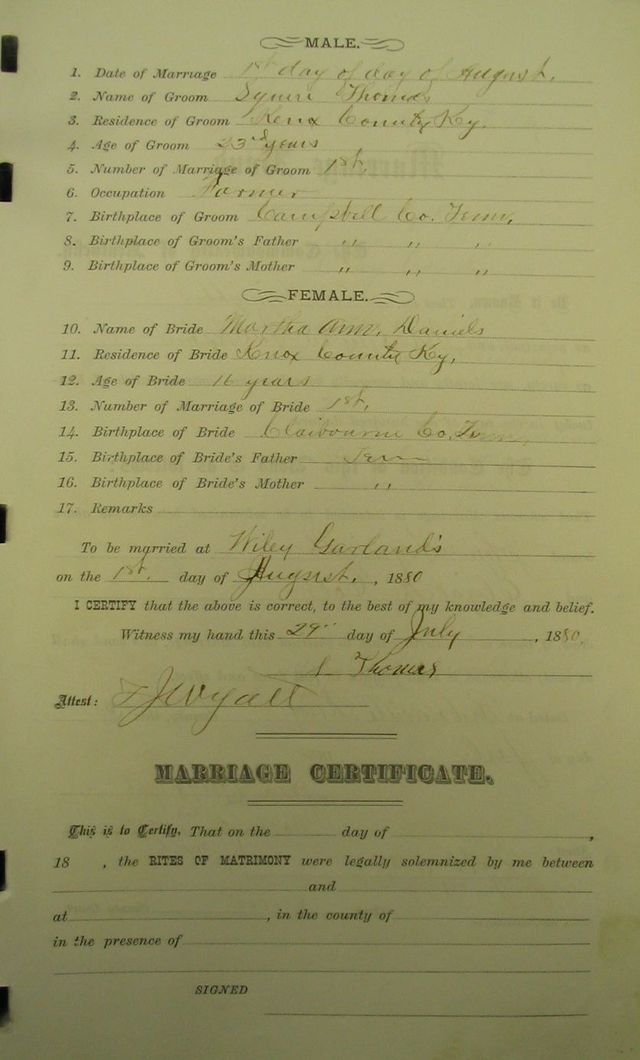 MALE.
1. Date of Marriage 1st day of day of August.
2. Name of Groom Squire Thomas
3. Residence of Groom Knox County Ky.
4. Age of Groom 23 years
5. Number of Marriage of Groom 1st.
6. Occupation Farmer
7. Birthplace of Groom Campbell Co. Tenn.
8. Birthplace of Groom's Father " " "
9. Birthplace of Groom's Mother " " "
FEMALE.
10. Name of Bride Martha Ann. Daniels
11. Residence of Bride Knox County Ky.
12. Age of Bride 16 years
13. Number of Marriage of Bride 1st.
14. Birthplace of Bride Claibourne Co. Tenn.
15. Birthplace of Bride's Father Tenn
16. Birthplace of Bride's Mother "
17. Remarks
To be married at Wiley Garland's
on the 1st. day of August. , 1880
I CERTIFY that the above is correct, to the best of my knowledge and belief.
Witness my hand this 29" day of July , 1880.
Thomas
Attest: Wyatt
MARRIAGE CERTIFICATE.
This is to Certify, That on the day of ,
18 , the RITES OF MATRIMONY were legally solemnized by me between
and
at , in the county of
in the presence of
SIGNED